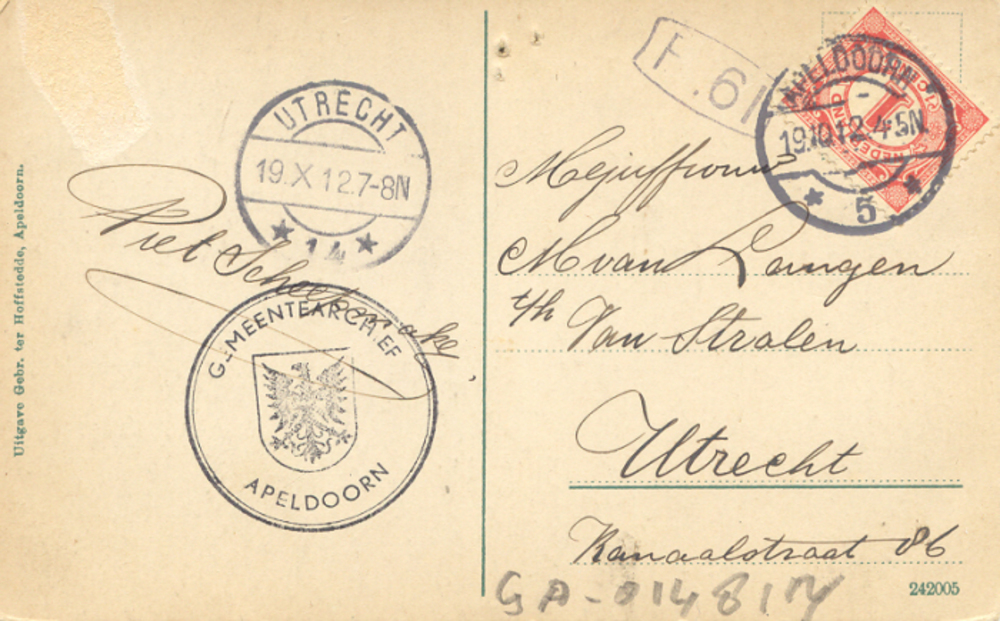 Uitgave Gebr. ter Hoffstedde, Apeldoorn.
UTRECHT
19.X 12.7-8N
14
Piet Scheepmaker
GEMEENTEARCHIEF
APELDOORN
F. 61
APELDOORN
19.10.12.4-5N
5
1
Mejuffrouw
M van Langen
t/h Van Stralen
Utrecht
Kanaalstraat 86
242005
GA-014817